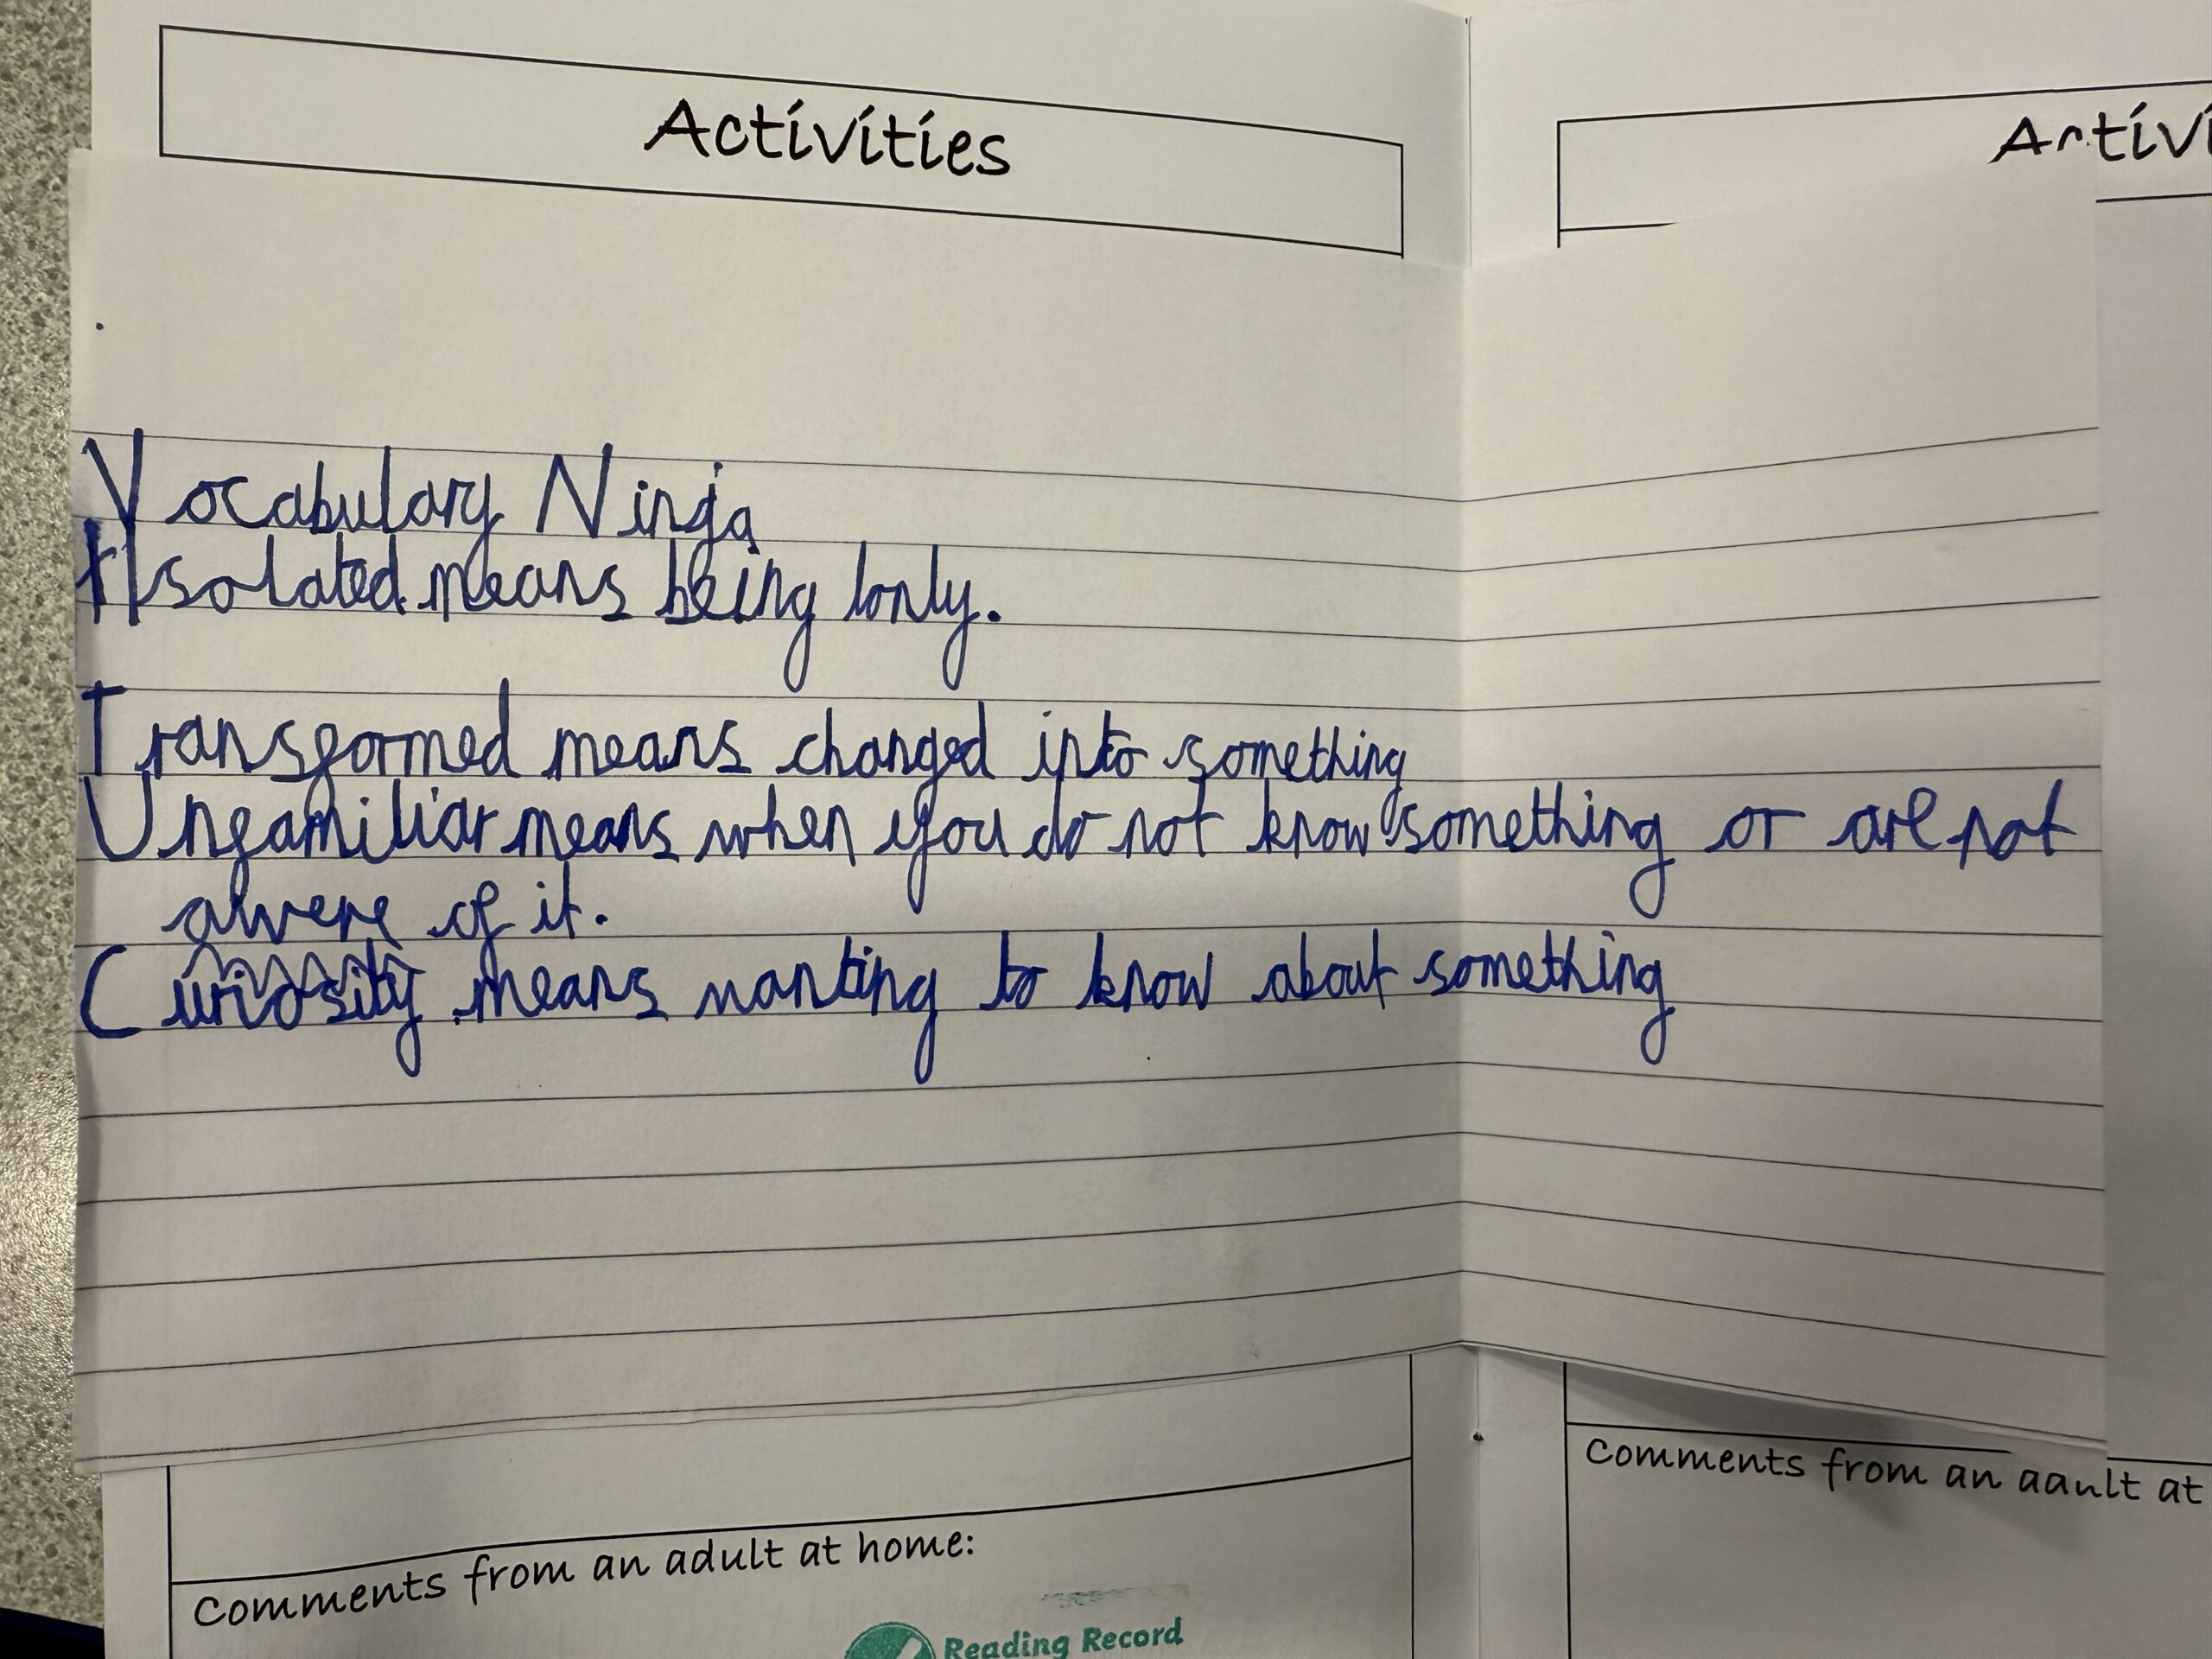 Activities
Activi
Vocabulary Ninja
Isolated means being lonly.
Transformed means changed into something
Unfamiliar means when you do not know something or are not
awere of it.
Curiosity means wanting to know about something
Comments from an adult at home:
Comments from an adult at
Reading Record